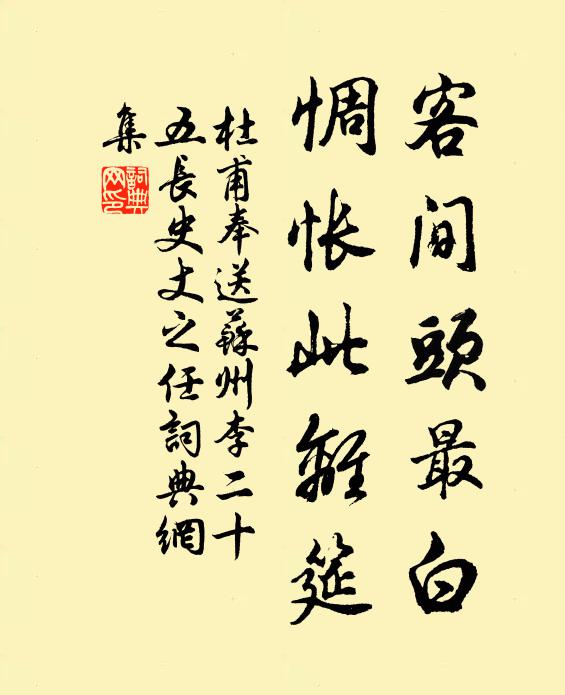 客間頭最白
惆悵此離筵
杜甫奉送蘇州李二十
五長史丈之任詞典網
集
詞典
网印